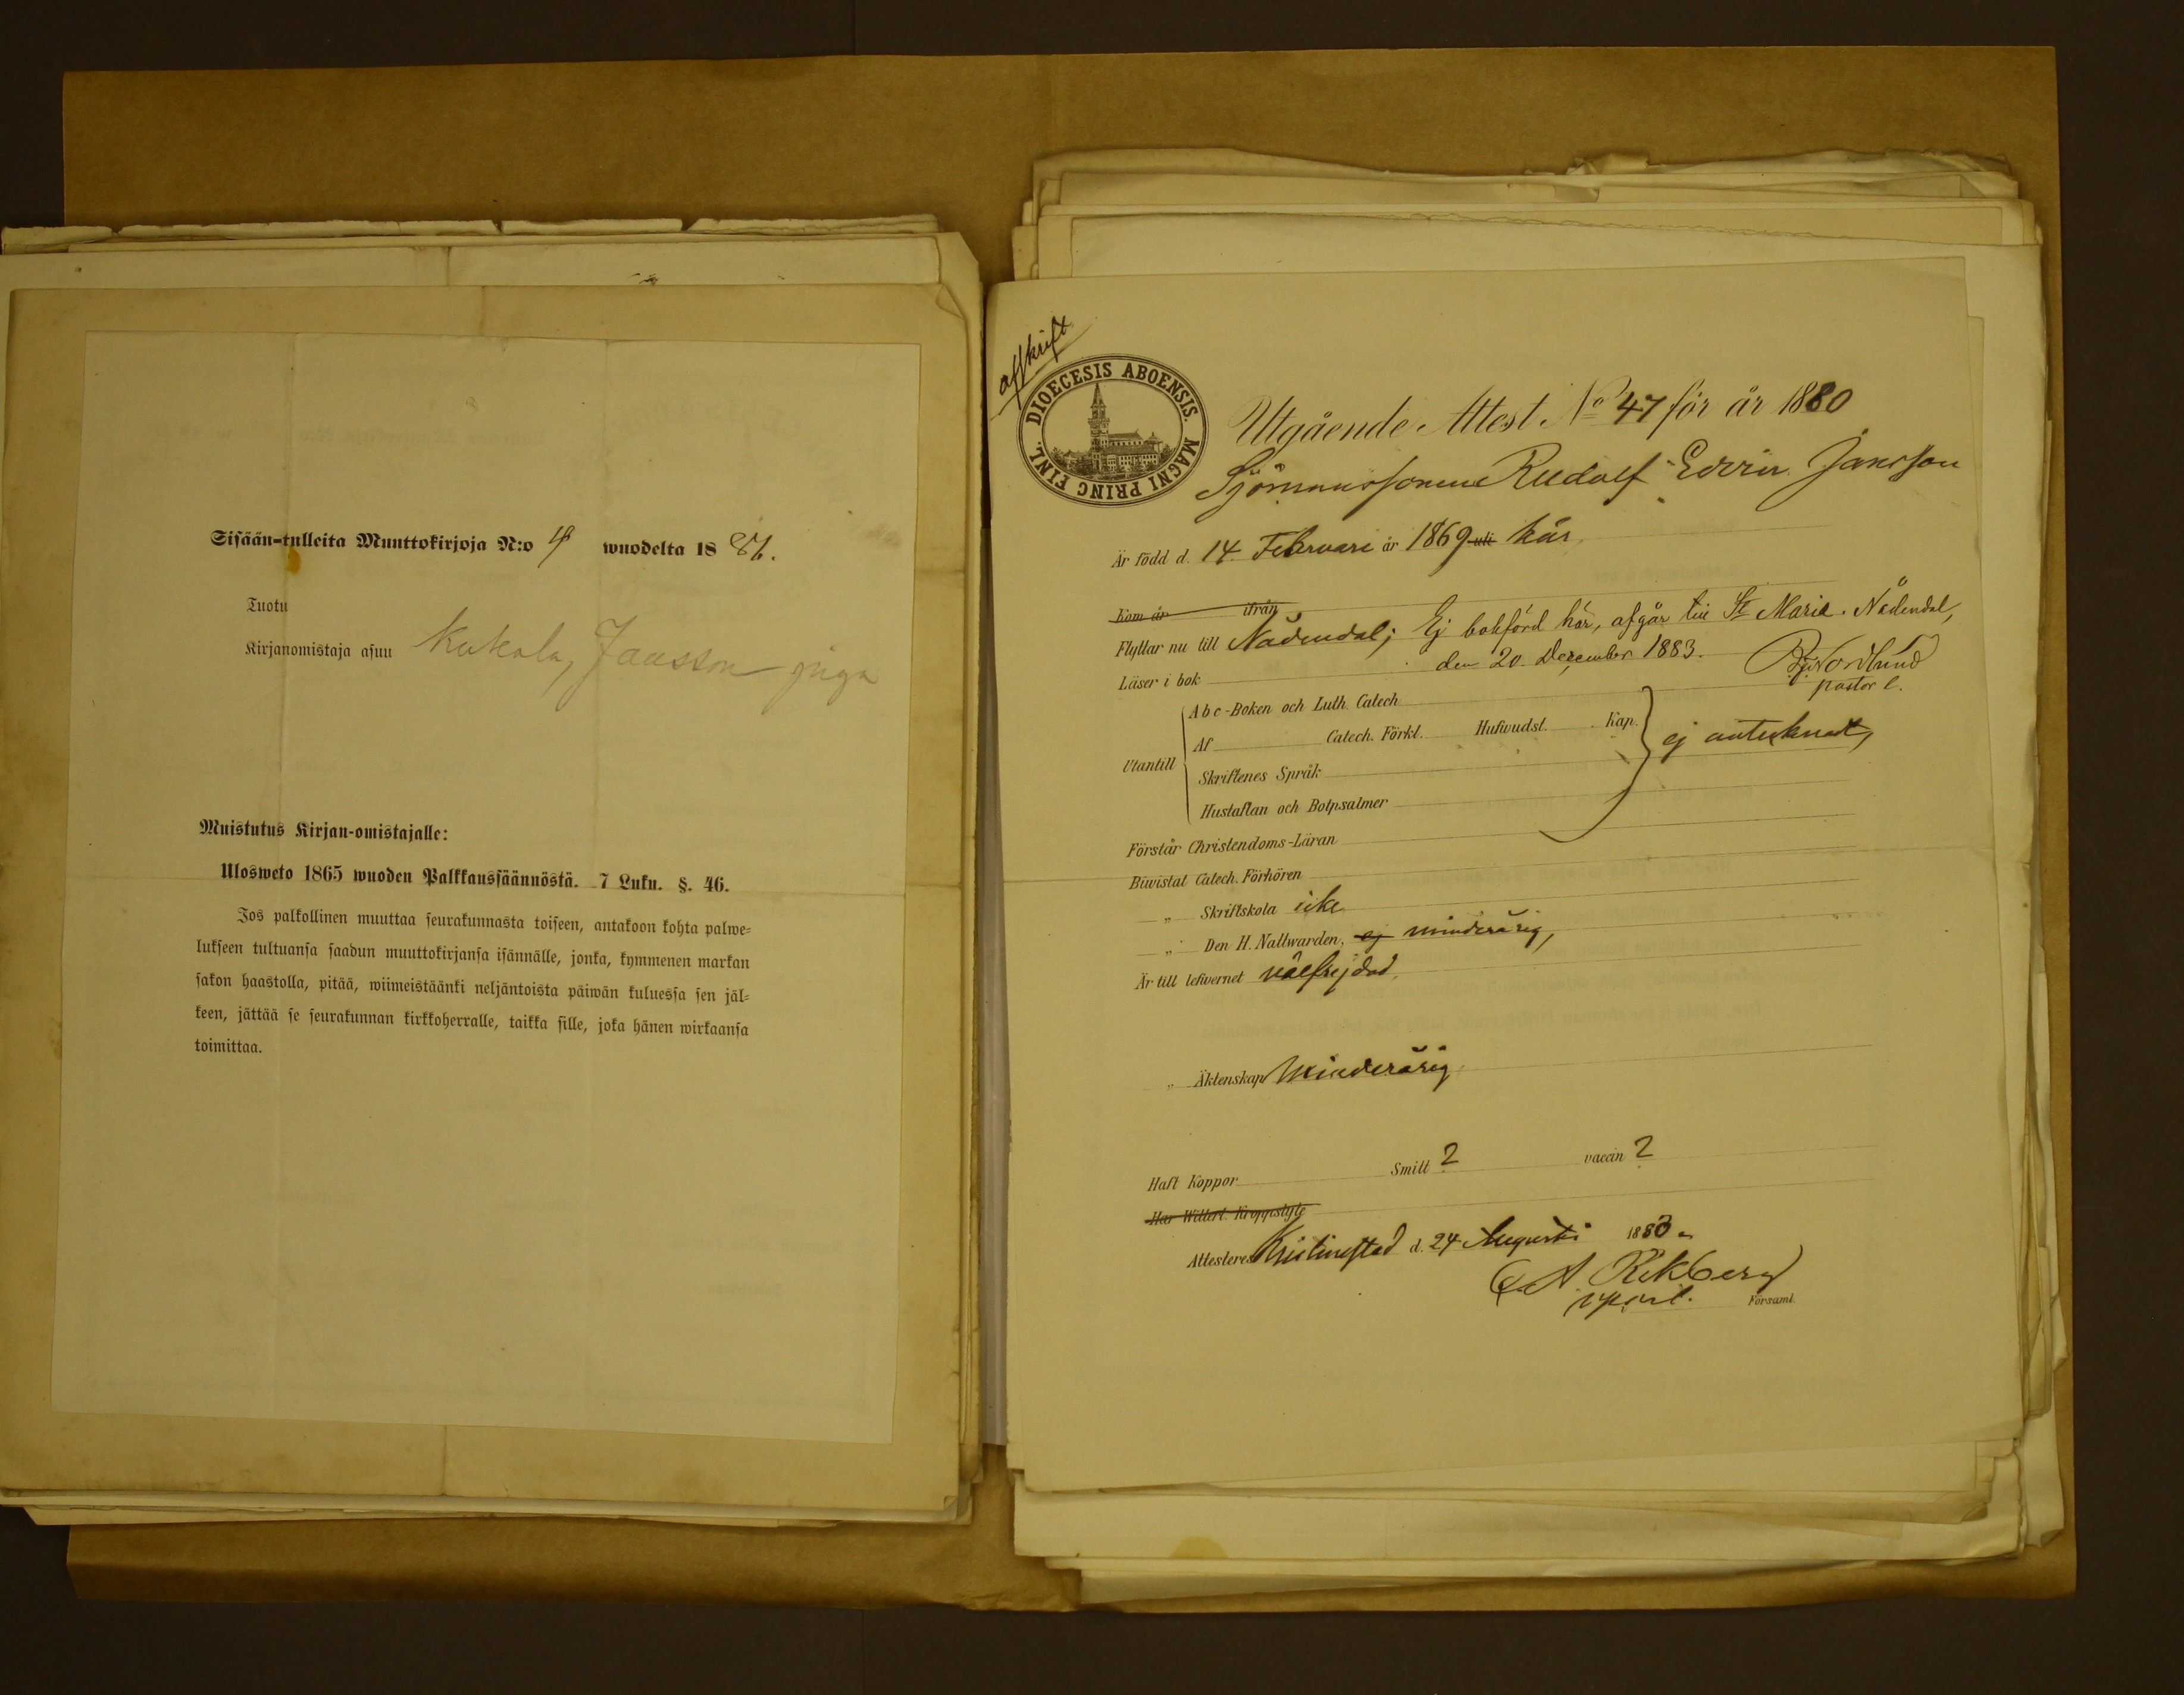 Sisään-tulleita Muuttokirjoja N:o 4 wuodelta 18 81.
Tuotu
Kirjanomistaja asuu Kukola, Jansson piga
Muistutus Kirjan-omistajalle:
Ulosweto 1865 wuoden Palkkaussäännöstä. 7 Luku. §. 46.
Jos palkollinen muuttaa seurakunnasta toiseen, antakoon kohta palwe-
lukseen tultuansa saadun muuttokirjansa isännälle, jonka, kymmenen markan
sakon haastolla, pitää, wiimeistäänki neljäntoista päiwän kuluessa sen jäl-
keen, jättää se seurakunnan kirkkoherralle, taikka sille, joka hänen wirkaansa
toimittaa.
afskrift
DIOECESIS ABOENSIS. MAGNI PRINC FINL.
Utgående Attest No 47 för år 1880
Sjömanssonen Rudolf Edvin Jansson
Är född d. 14 Februari år 1869 uti här
Kom år ifrån
Flyttar nu till Nådendal; Ej bokförd här, afgår till St Marie. Nådendal,
den 20 December 1883. Nordlund
Läser i bok pastor l.
Utantill
Abc-Boken och Luth. Catech
Af Catech. Förkl. Hufwudst. Kap. ej antecknat,
Skriftenes Språk
Hustaflan och Botpsalmer
Förstår Christendoms-Läran
Biwistat Catech. Förhören
„ Skriftskola icke
„ Den H. Nattwarden. ej minderårig,
Är till lefwernet välfrejdad,
„ Äktenskap Minderårig
Haft Koppor Smitt ? vaccin ?
Har Widert. Kroppslyte
Attesteres Kristinestad d. 24 Augusti 1880
A. Rekberg
Församl.